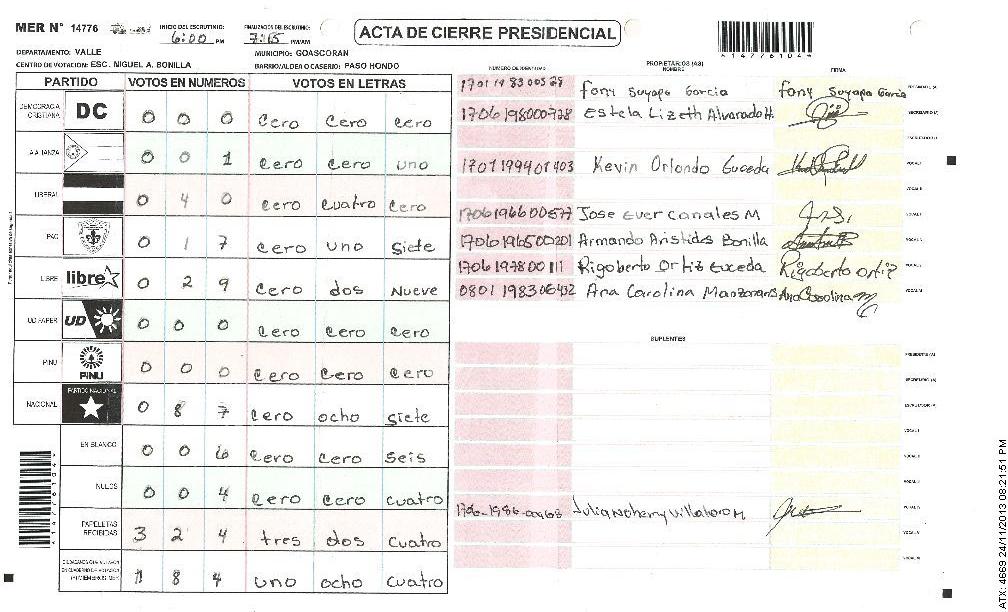 MER N° 14776
INICIO DEL ESCRUTINIO: 6:00 PM
FINALIZACION DEL ESCRUTINIO: 7:15 PM/AM
ACTA DE CIERRE PRESIDENCIAL
*14776104*
DEPARTAMENTO: VALLE
MUNICIPIO: GOASCORAN
CENTRO DE VOTACION: ESC. MIGUEL A. BONILLA
BARRIO/ALDEA O CASERIO: PASO HONDO
PARTIDO VOTOS EN NUMEROS VOTOS EN LETRAS
DEMOCRACIA CRISTIANA DC 0 0 0 cero cero cero
LA ALIANZA 0 0 1 cero cero uno
LIBERAL 0 4 0 cero cuatro cero
PAC 0 1 7 cero uno siete
LIBRE libre 0 2 9 cero dos Nueve
UD FAPER UD 0 0 0 cero cero cero
PINU PINU 0 0 0 cero cero cero
NACIONAL PARTIDO NACIONAL 0 8 7 cero ocho siete
EN BLANCO 0 0 6 cero cero seis
NULOS 0 0 4 cero cero cuatro
PAPELETAS RECIBIDAS 3 2 4 tres dos cuatro
1 8 4 uno ocho cuatro
NUMERO DE IDENTIDAD
PROPIETARIOS (AS)
NOMBRE
FIRMA
fany Suyapa Garcia fany Suyapa Garcia PRESIDENTE (A)
1706198000728 Estela Lizeth Alvarado H. SECRETARIO (A)
ESCRUTADOR (A)
1701199401403 Kevin Orlando Euceda VOCAL I
VOCAL II
1706196600577 Jose Ever Canales M
1706196500201 Armando Aristides Bonilla
170619780011 Rigoberto Ortiz Euceda Rigoberto ortiz
0801198306432 Ana Carolina Manzanares Ana Carolina M
SUPLENTES
PRESIDENTE (A)
SECRETARIO (A)
ESCRUTADOR (A)
VOCAL I
VOCAL II
1706-1986-00468
ATX: 4669 24/11/2013 08:21:51 PM